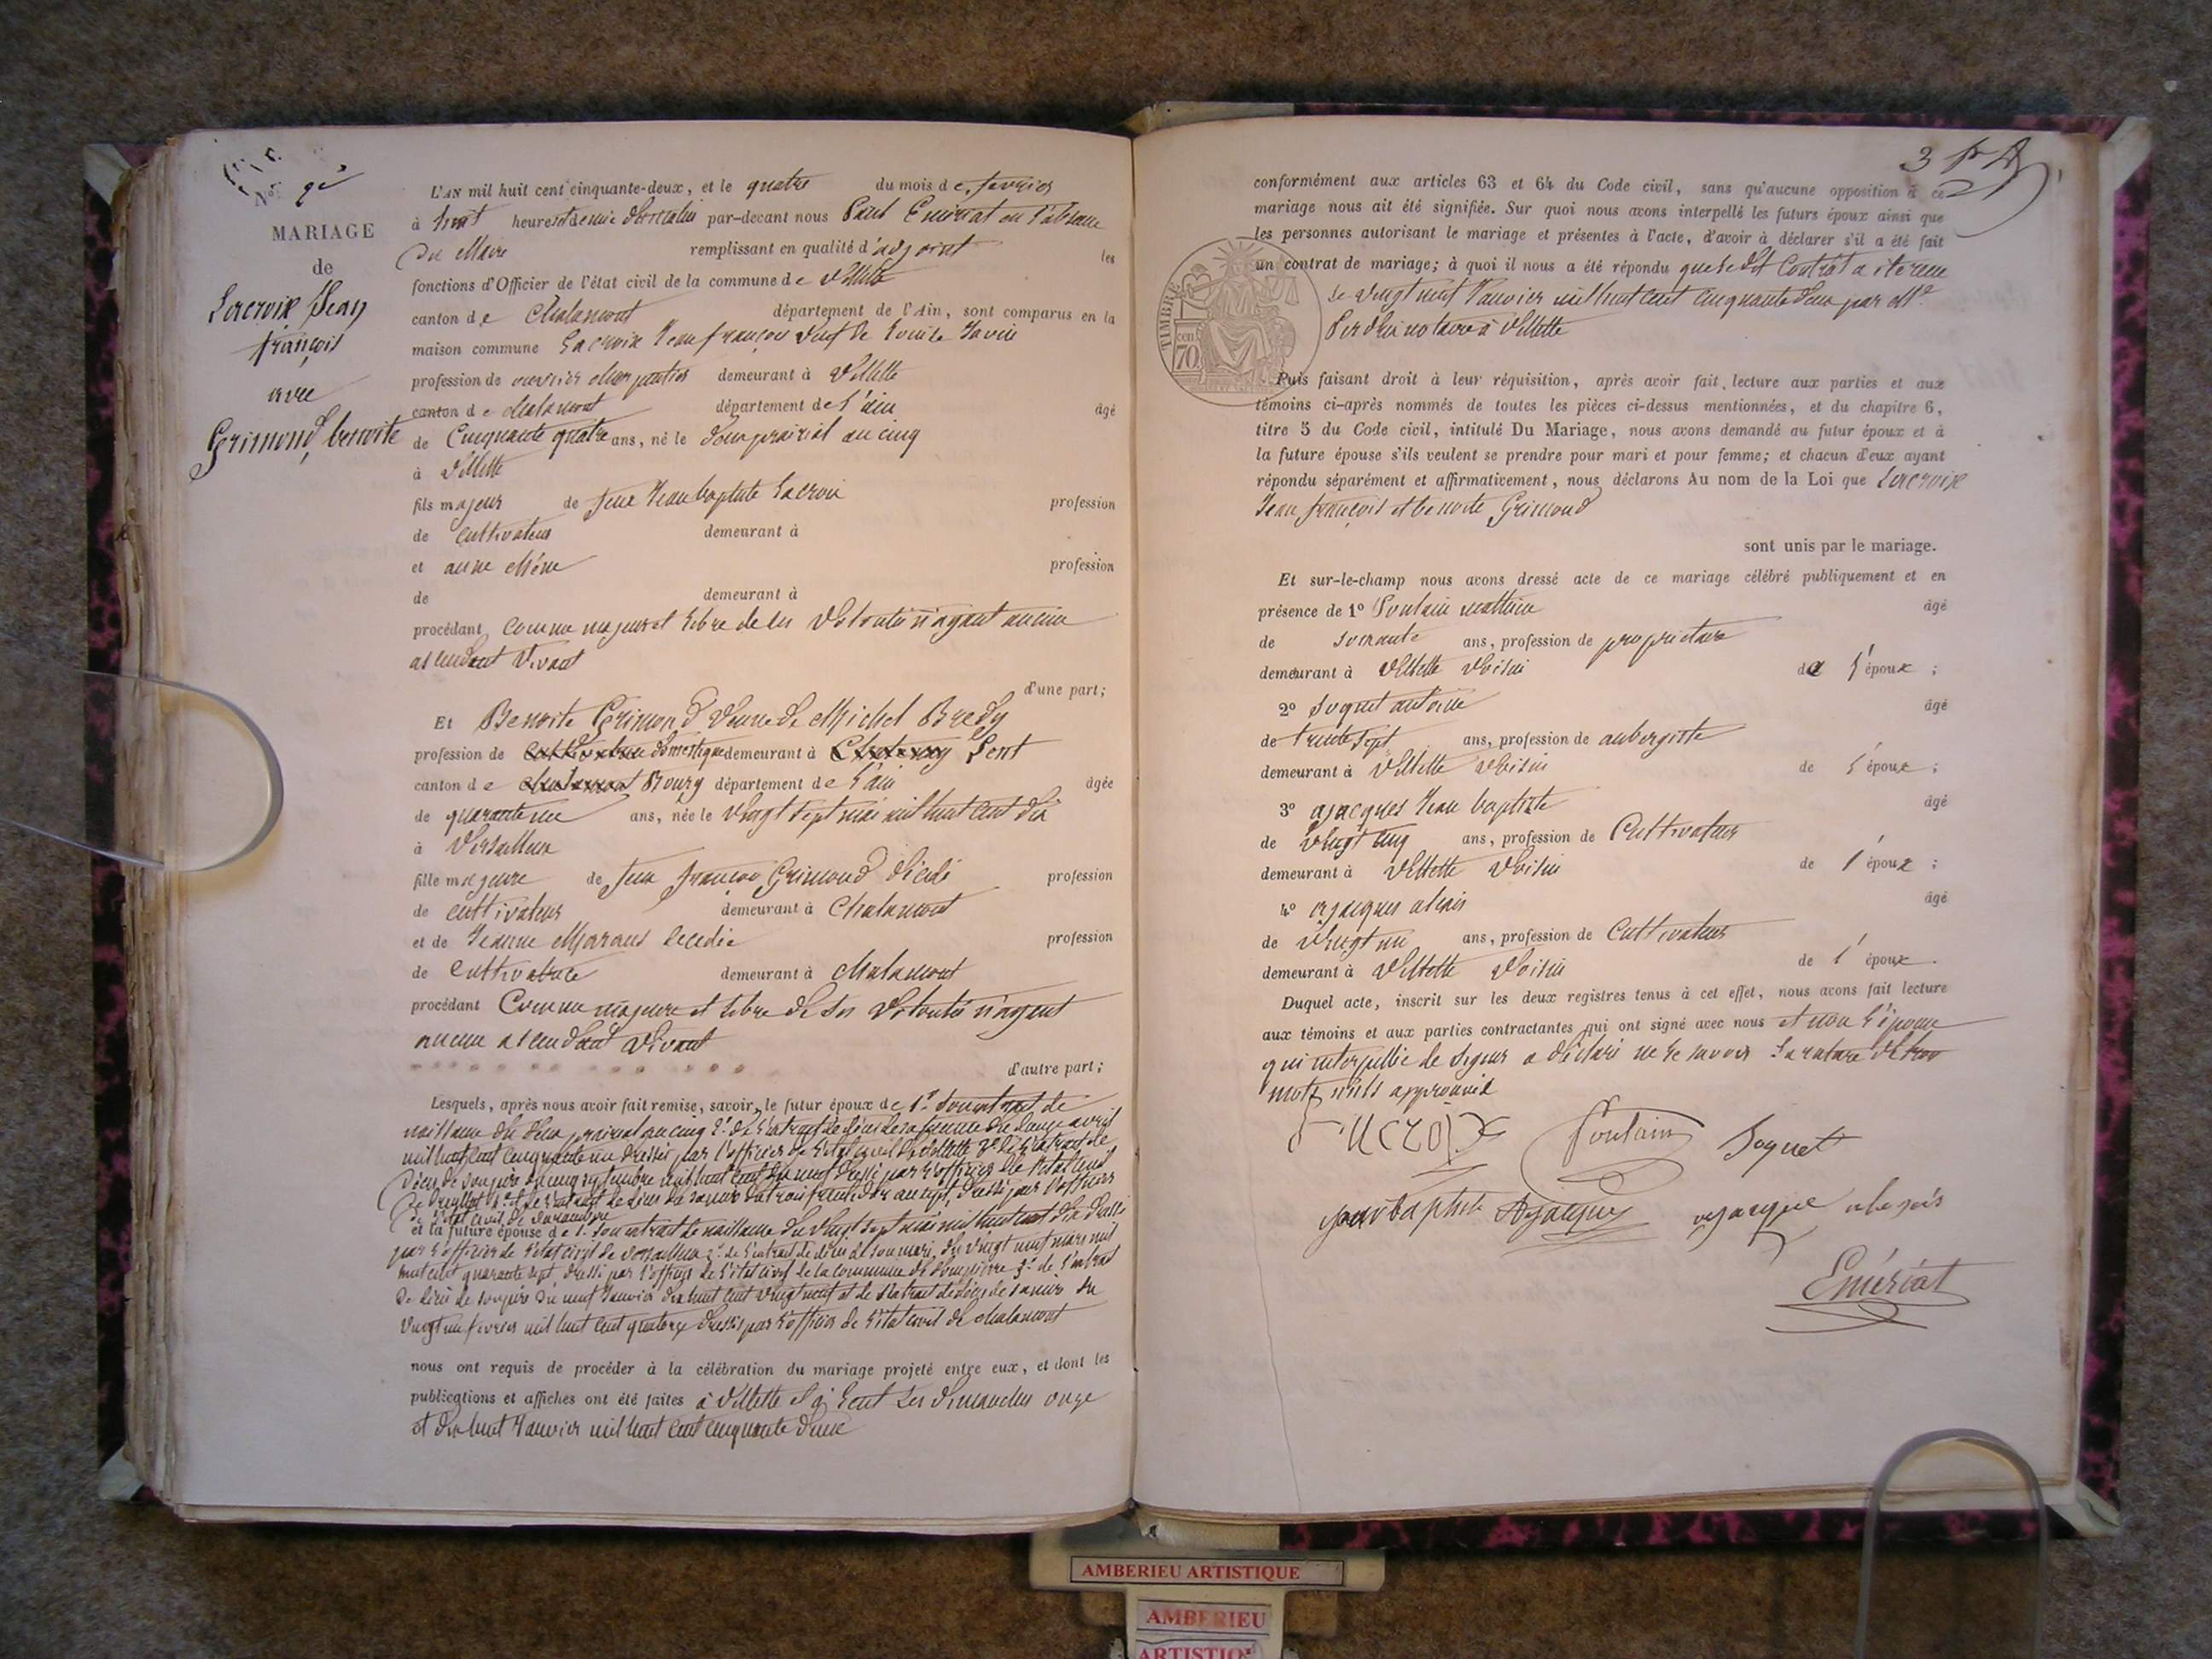 N°
MARIAGE
de
Lacroix Jean
françois
avec
Grimond benoite
L'AN mil huit cent cinquante-deux, et le quatre du mois de fevrier
à huit heures et demie du matin par-devant nous Paul Emériat en l'absence
du Maire remplissant en qualité d'adjoint les
fonctions d'Officier de l'état civil de la commune de Villette
canton de Chalamont département de l'Ain, sont comparus en la
maison commune Lacroix Jean françois veuf de Louise
profession de ouvrier charpentier demeurant à Villette
canton de chalamont département de l'ain âgé
de Cinquante quatre ans, né le deux prairial an cinq
à Villette
fils majeur de feux Jean baptiste Lacroix profession
de cultivateur demeurant à
et anne profession
de demeurant à
procédant comme majeur et libre de ses volontés n'ayant aucun
ascendant vivant
d'une part;
Et Benoite Grimond veuve de Michel Bredy
profession de domestique demeurant à Lent
canton de Bourg département de l'ain âgée
de quarante un ans, née le vingt sept mai mil huit cent dix
à Versailleux
fille majeure de feux françois Grimond décédé profession
de cultivateur demeurant à Chalamont
et de Jeanne decedée profession
de cultivatrice demeurant à chalamont
procédant Comme majeure et libre de ses volontés n'ayent
aucun ascendant vivant
d'autre part;
Lesquels, après nous avoir fait remise, savoir, le futur époux de 1° son extrait de
naissance du deux prairial an cinq 2° de l'extrait de décès de sa femme du avril
mil huit cent cinquante un dressés par l'officier de l'état civil de Villette 3° de l'extrait de
décès de son père du cinq septembre mil huit cent dix neuf dressé par l'officier de l'état civil
de 4° et de l'extrait de décès de sa mère du trois an sept, dressé par l'officier
de l'état civil de
et la future épouse de 1° son extrait de naissance du vingt sept mai mil huit cent dix dressé
par l'officier de l'état civil de versailleux 2° de l'extrait de décès de son mari, du vingt neuf mars mil
huit cent quarante sept, dressé par l'officier de l'état civil de la commune de dompierre 3° de l'extrait
de décès de son père du neuf Janvier dix huit cent vingt neuf et de l'extrait de décès de sa mère du
vingt un fevrier mil huit cent quatorze dressés par l'officier de l'état civil de chalamont
nous ont requis de procéder à la célébration du mariage projeté entre eux, et dont les
publications et affiches ont été faites à Villette et à Lent les dimanches onze
et dix huit Janvier mil huit cent cinquante deux
conformément aux articles 63 et 64 du Code civil, sans qu'aucune opposition à ce
mariage nous ait été signifiée. Sur quoi nous avons interpellé les futurs époux ainsi que
les personnes autorisant le mariage et présentes à l'acte, d'avoir à déclarer s'il a été fait
un contrat de mariage; à quoi il nous a été répondu que le dit Contrat a été reçu
le vingt neuf Janvier mil huit cent cinquante deux par Me
notaire à Villette
TIMBRE
cen
70
Puis faisant droit à leur réquisition, après avoir fait lecture aux parties et aux
témoins ci-après nommés de toutes les pièces ci-dessus mentionnées, et du chapitre 6,
titre 5 du Code civil, intitulé Du Mariage, nous avons demandé au futur époux et à
la future épouse s'ils veulent se prendre pour mari et pour femme; et chacun d'eux ayant
répondu séparément et affirmativement, nous déclarons Au nom de la Loi que Lacroix
Jean françois et benoite Grimond
sont unis par le mariage.
Et sur-le-champ nous avons dressé acte de ce mariage célébré publiquement et en
présence de 1° mathieu âgé
de soixante ans, profession de propriétaire
demeurant à Villette voisin de l'époux;
2° Soquet antoine âgé
de trente sept ans, profession de aubergiste
demeurant à Villette voisin de l'époux;
3° ajacques Jean baptiste âgé
de vingt cinq ans, profession de Cultivateur
demeurant à Villette voisin de l'époux;
4° ajacques alexis âgé
de vingt un ans, profession de Cultivateur
demeurant à Villette voisin de l'époux.
Duquel acte, inscrit sur les deux registres tenus à cet effet, nous avons fait lecture
aux témoins et aux parties contractantes qui ont signé avec nous et non l'épouse
qui interpellée de signer a déclaré ne le savoir La rature de trois
mots nuls approuvée
Lacroix Soquet
Jean baptiste Ajacques ajacque alexis
Emériat
AMBERIEU ARTISTIQUE
AMBERIEU
ARTISTIQUE